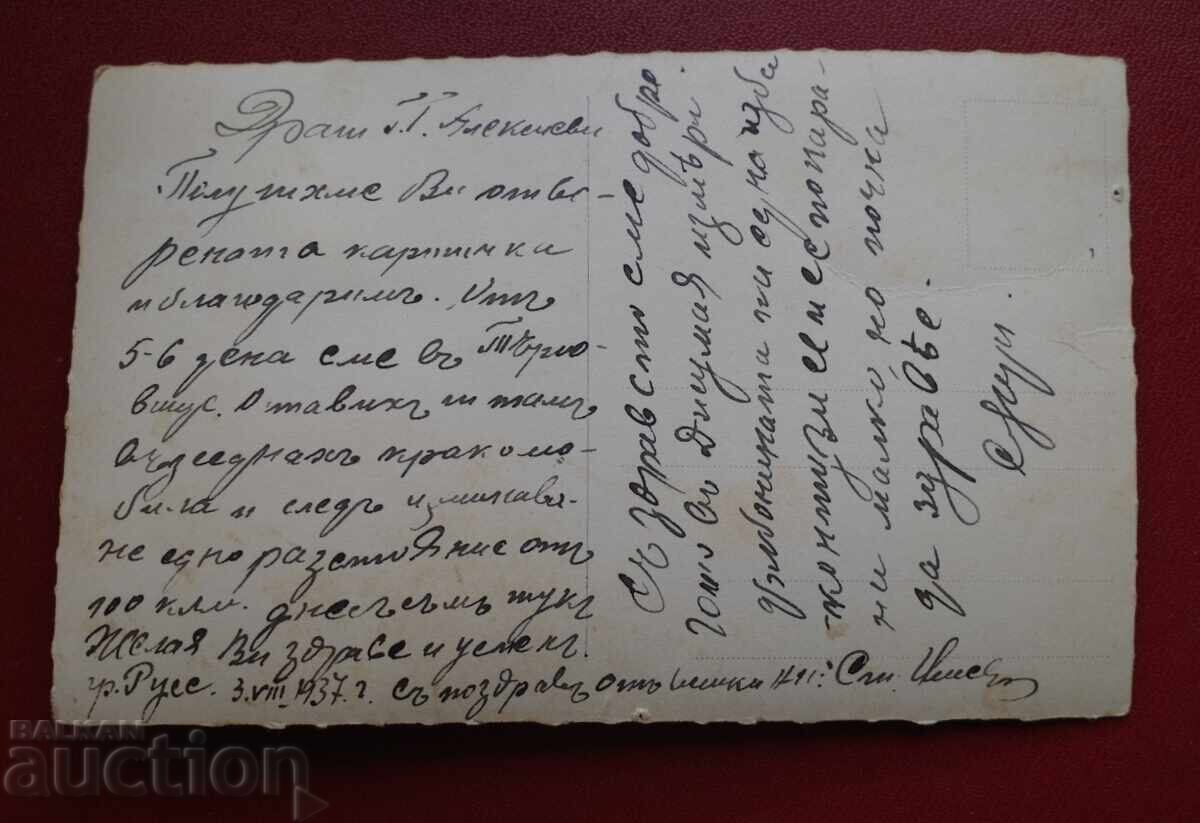 Драги г. г. Алексиеви
Получихме Ви отво-
рената картичка
и благодаримъ. Отъ
5-6 дена сме въ
Оставихъ и тамъ
възседнахъ кракомо-
била и следъ изминава-
не едно разстояние отъ
100 клм. днесъ съмъ тукъ
Желая Ви здраве и успехъ.
гр. Русе. 3.VIII.1937.г. съ поздравъ отъ всички ни: Ст.
Съ здравето сме добре.
Гошо въ Джумая измѣри
дълбочината на една изба
контузи се и се понара-
ни малко, но почна
да здравѣе.
Същи.
BALKAN
auction